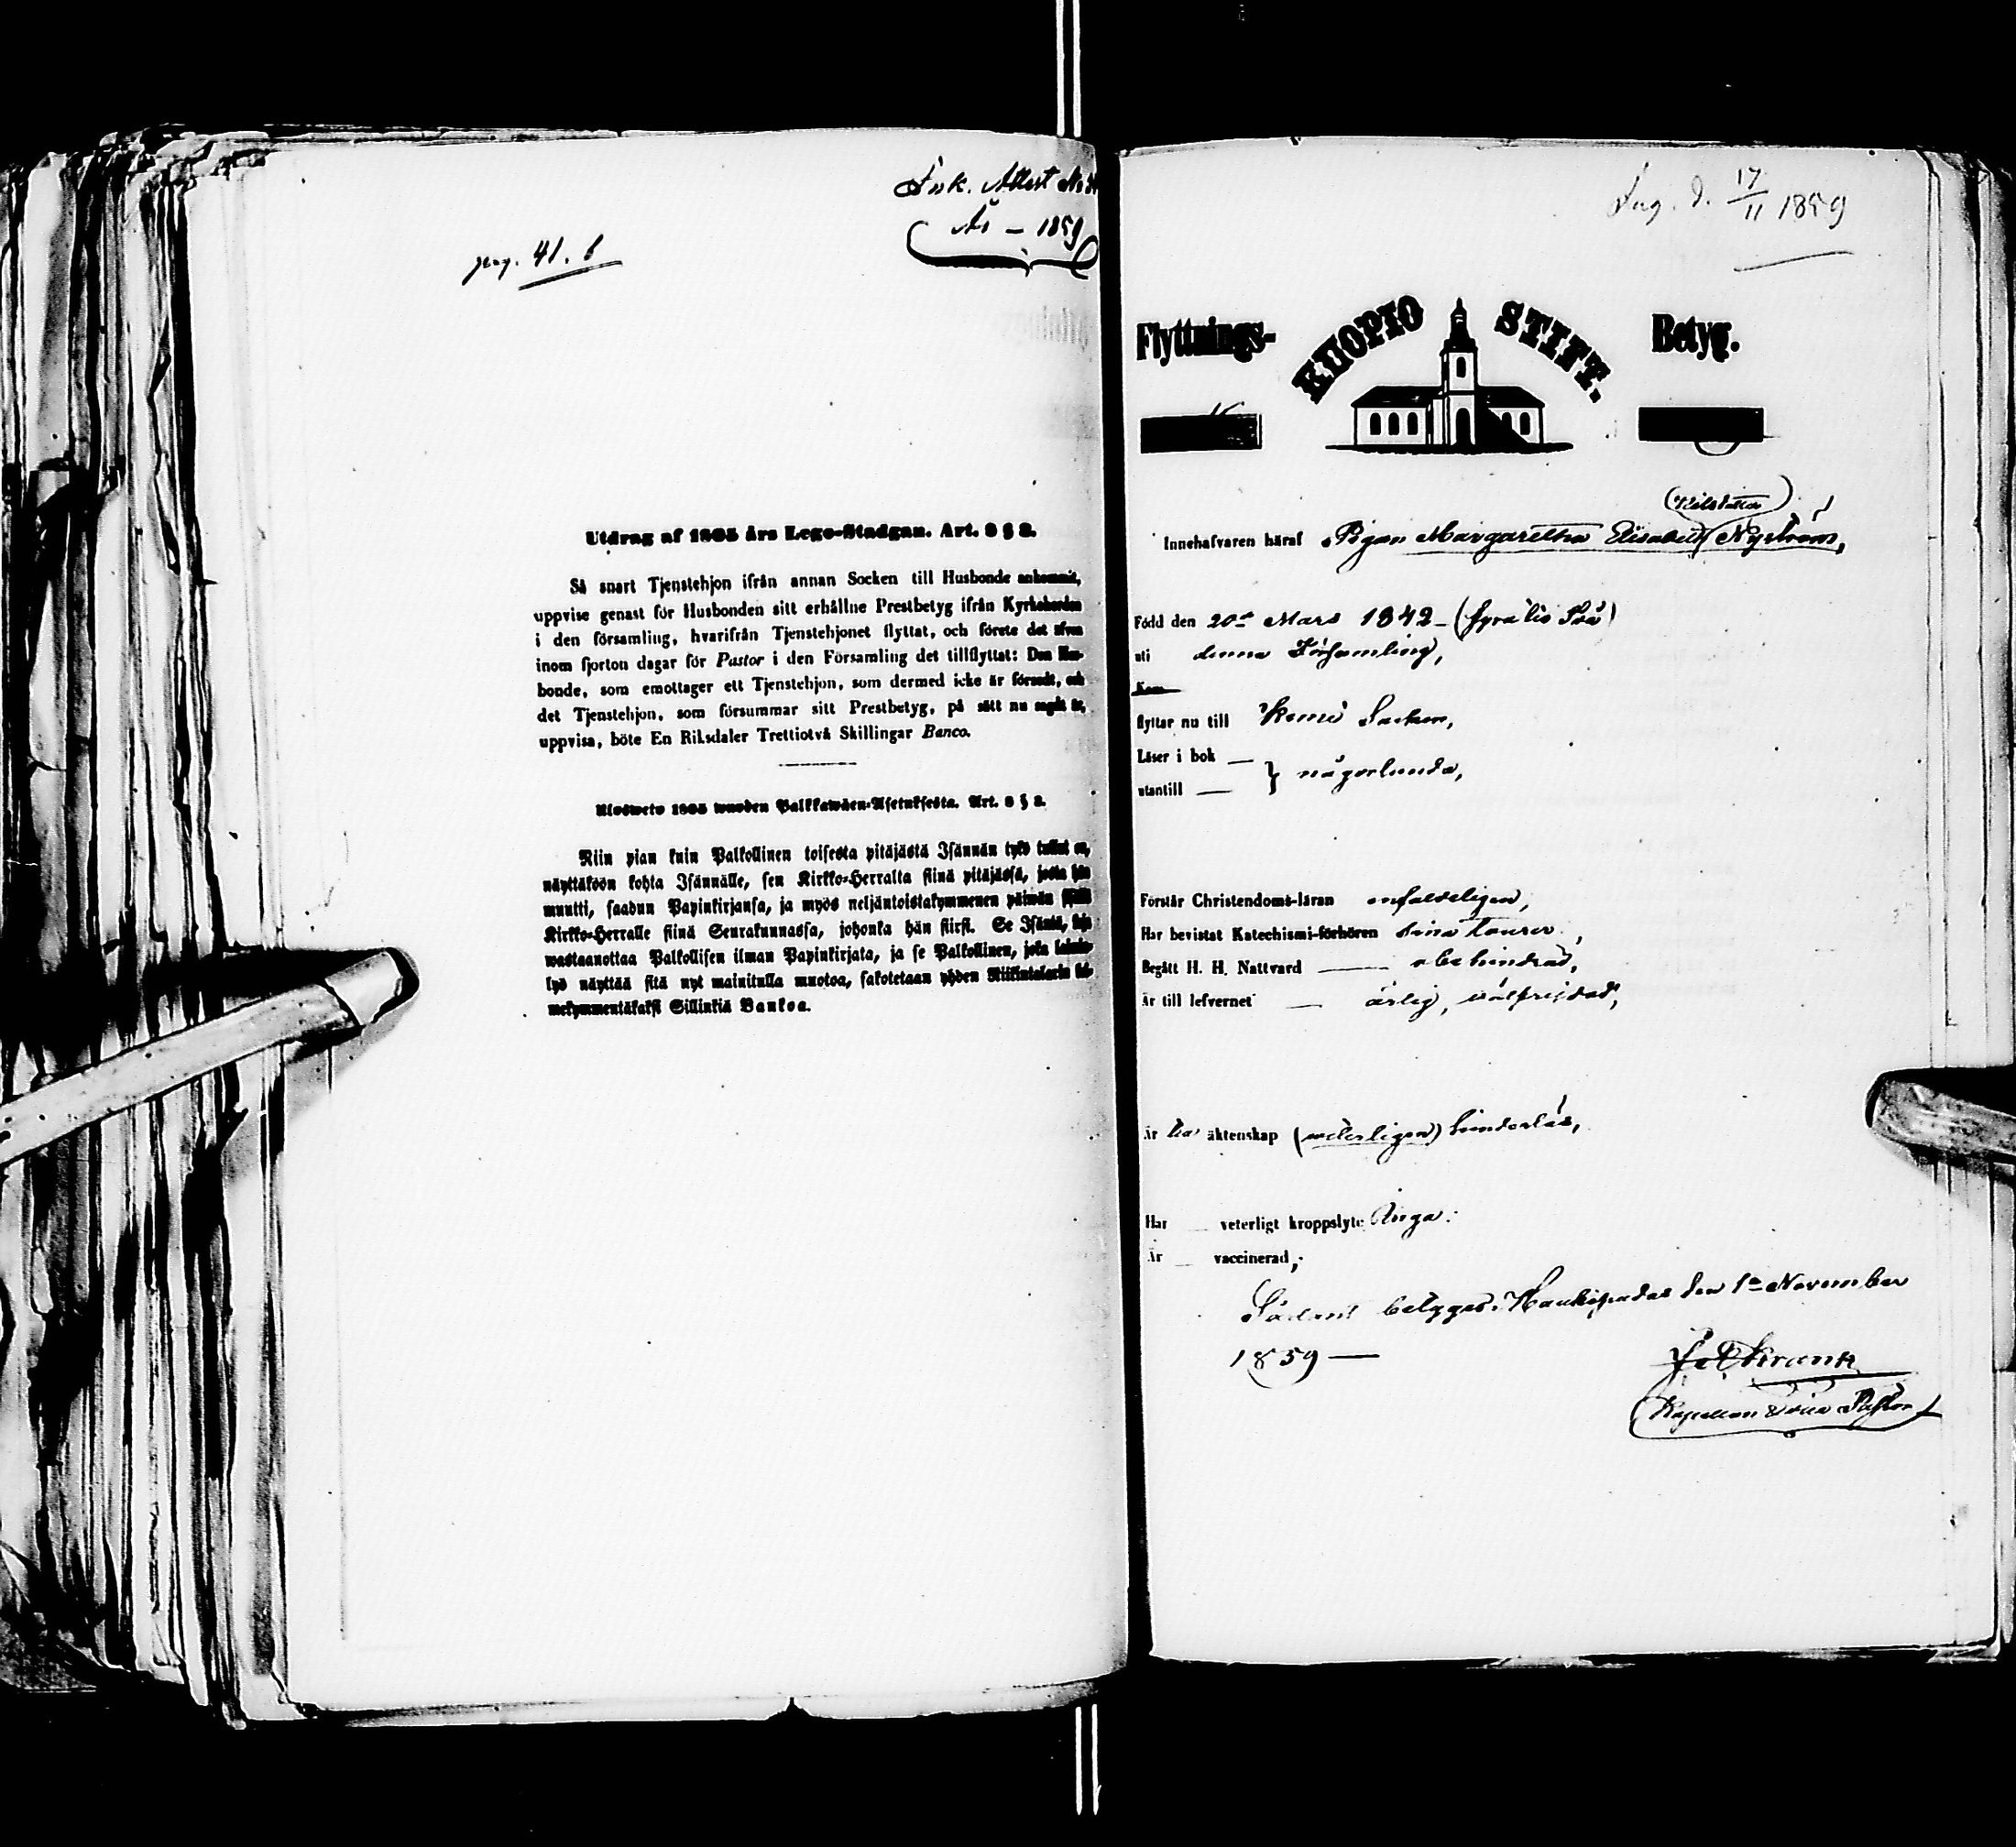 Ink. Attest No
År – 1859
pag. 41. b
Utdrag af 1805 års Lego-Stadgan. Art. 8 § 2.
Så snart Tjenstehjon ifrån annan Socken till Husbonde ankommit,
uppvise genast för Husbonden sitt erhållne Prestbetyg ifrån Kyrkoherden
i den församling, hvarifrån Tjenstehjonet flyttat, och förete det äfven
inom fjorton dagar för Pastor i den Församling det tillflyttat: Den Hus-
bonde, som emottager ett Tjenstehjon, som dermed icke är försedt, och
det Tjenstehjon, som försummar sitt Prestbetyg, på sätt nu sagdt är,
uppvisa, böte En Riksdaler Trettiotvå Skillingar Banco.
Ulosweto 1805 wuoden Palkkawäen-Asetuksesta. Art. 8 § 2.
Niin pian kuin Palkollinen toisesta pitäjästä Isännän tykö tullut on,
näyttäköön kohta Isännälle, sen Kirkko-Herralta siinä pitäjässä, josta hän
muutti, saadun Papinkirjansa, ja myös neljäntoistakymmenen päiwän sisällä
Kirkko-Herralle siinä Seurakunnassa, johonka hän siirsi. Se Isäntä, joka
wastaanottaa Palkollisen ilman Papinkirjata, ja se Palkollinen, joka laimin-
lyö näyttää sitä nyt mainitulla muotoa, sakotetaan yhden Riikintalarin kol-
mekymmentäkaksi Sillinkiä Bankoa.
Ing. d. 17/11 1859
Flyttnings- KUOPIO STIFT. Betyg.
Innehafvaren häraf Pigan Margaretha Elisabeth Nyström,
Född den 20de Mars 1842 – (fyratio två)
uti denna Församling,
flyttar nu till Kemi Socken,
Läser i bok —
utantill — } någorlunda,
Förstår Christendoms-läran enfaldeligen,
Har bevistat Katechismi-förhören sina tourer,
Begått H. H. Nattvard — obehindrad,
Är till lefvernet — ärlig, välfrejdad,
Är till äktenskap (veterligen) hinderlös,
Har — veterligt kroppslyte Inga.
Är — vaccinerad,
Sådant betygas. Haukipudas den 1ne November
1859 —
Krank
(Kapellan &